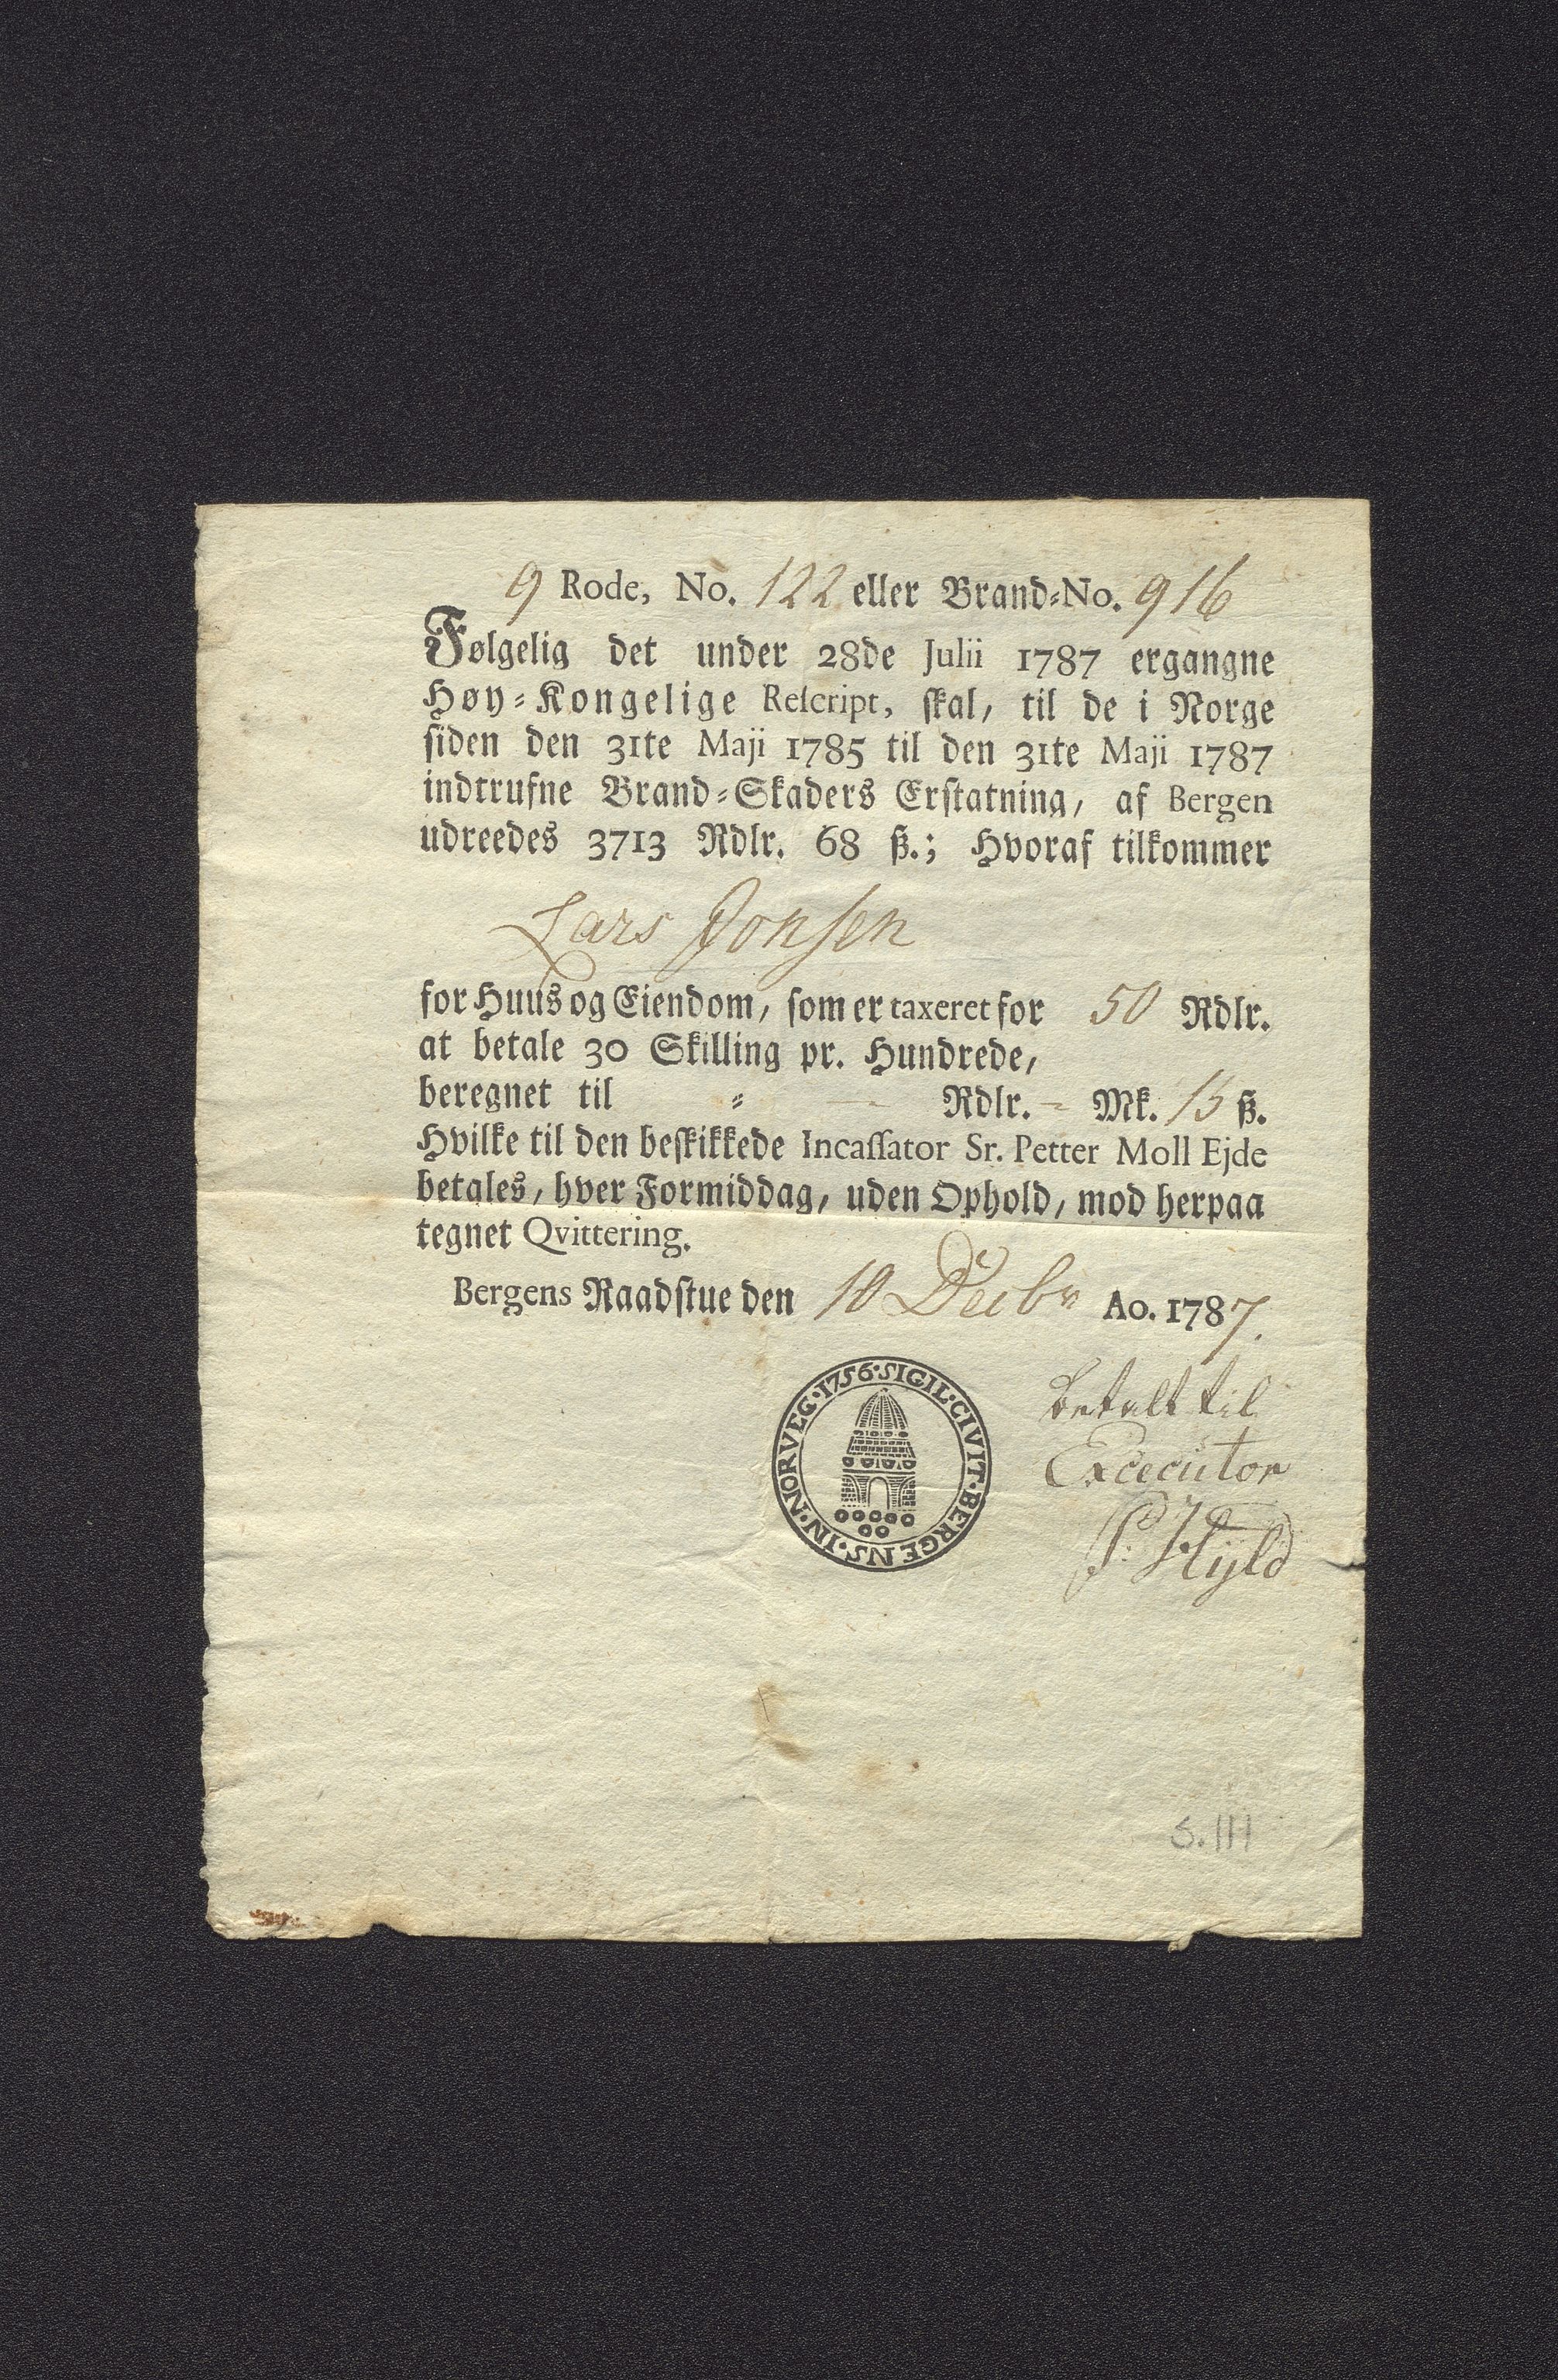 9 Rode, No. 122 eller Brand=No. 916
Følgelig det under 28de Julii 1787 ergangne
Høy=Kongelige Rescript, skal, til de i Norge
siden den 31te Maji 1785 til den 31te Maji 1787
indtrufne Brand=Skaders Erstatning, af Bergen
udreedes 3713 Rdlr. 68 ß.; Hvoraf tilkommer
Lars Jonsen
for Huus og Eiendom, som er taxeret for 50 Rdlr.
at betale 30 Skilling pr. Hundrede,
beregnet til = — Rdlr. - Mk. 15 ß.
Hvilke til den beskikkede Incassator Sr. Petter Moll Ejde
betales, hver Formiddag, uden Ophold, mod herpaa
tegnet Qvittering.
Bergens Raadstue den 10 Decbr Ao. 1787.
1756·SIGIL·CIVIT·BERGENS·IN·NORVEG·
betalt til
Excecutor
P: Hyld
S. 111